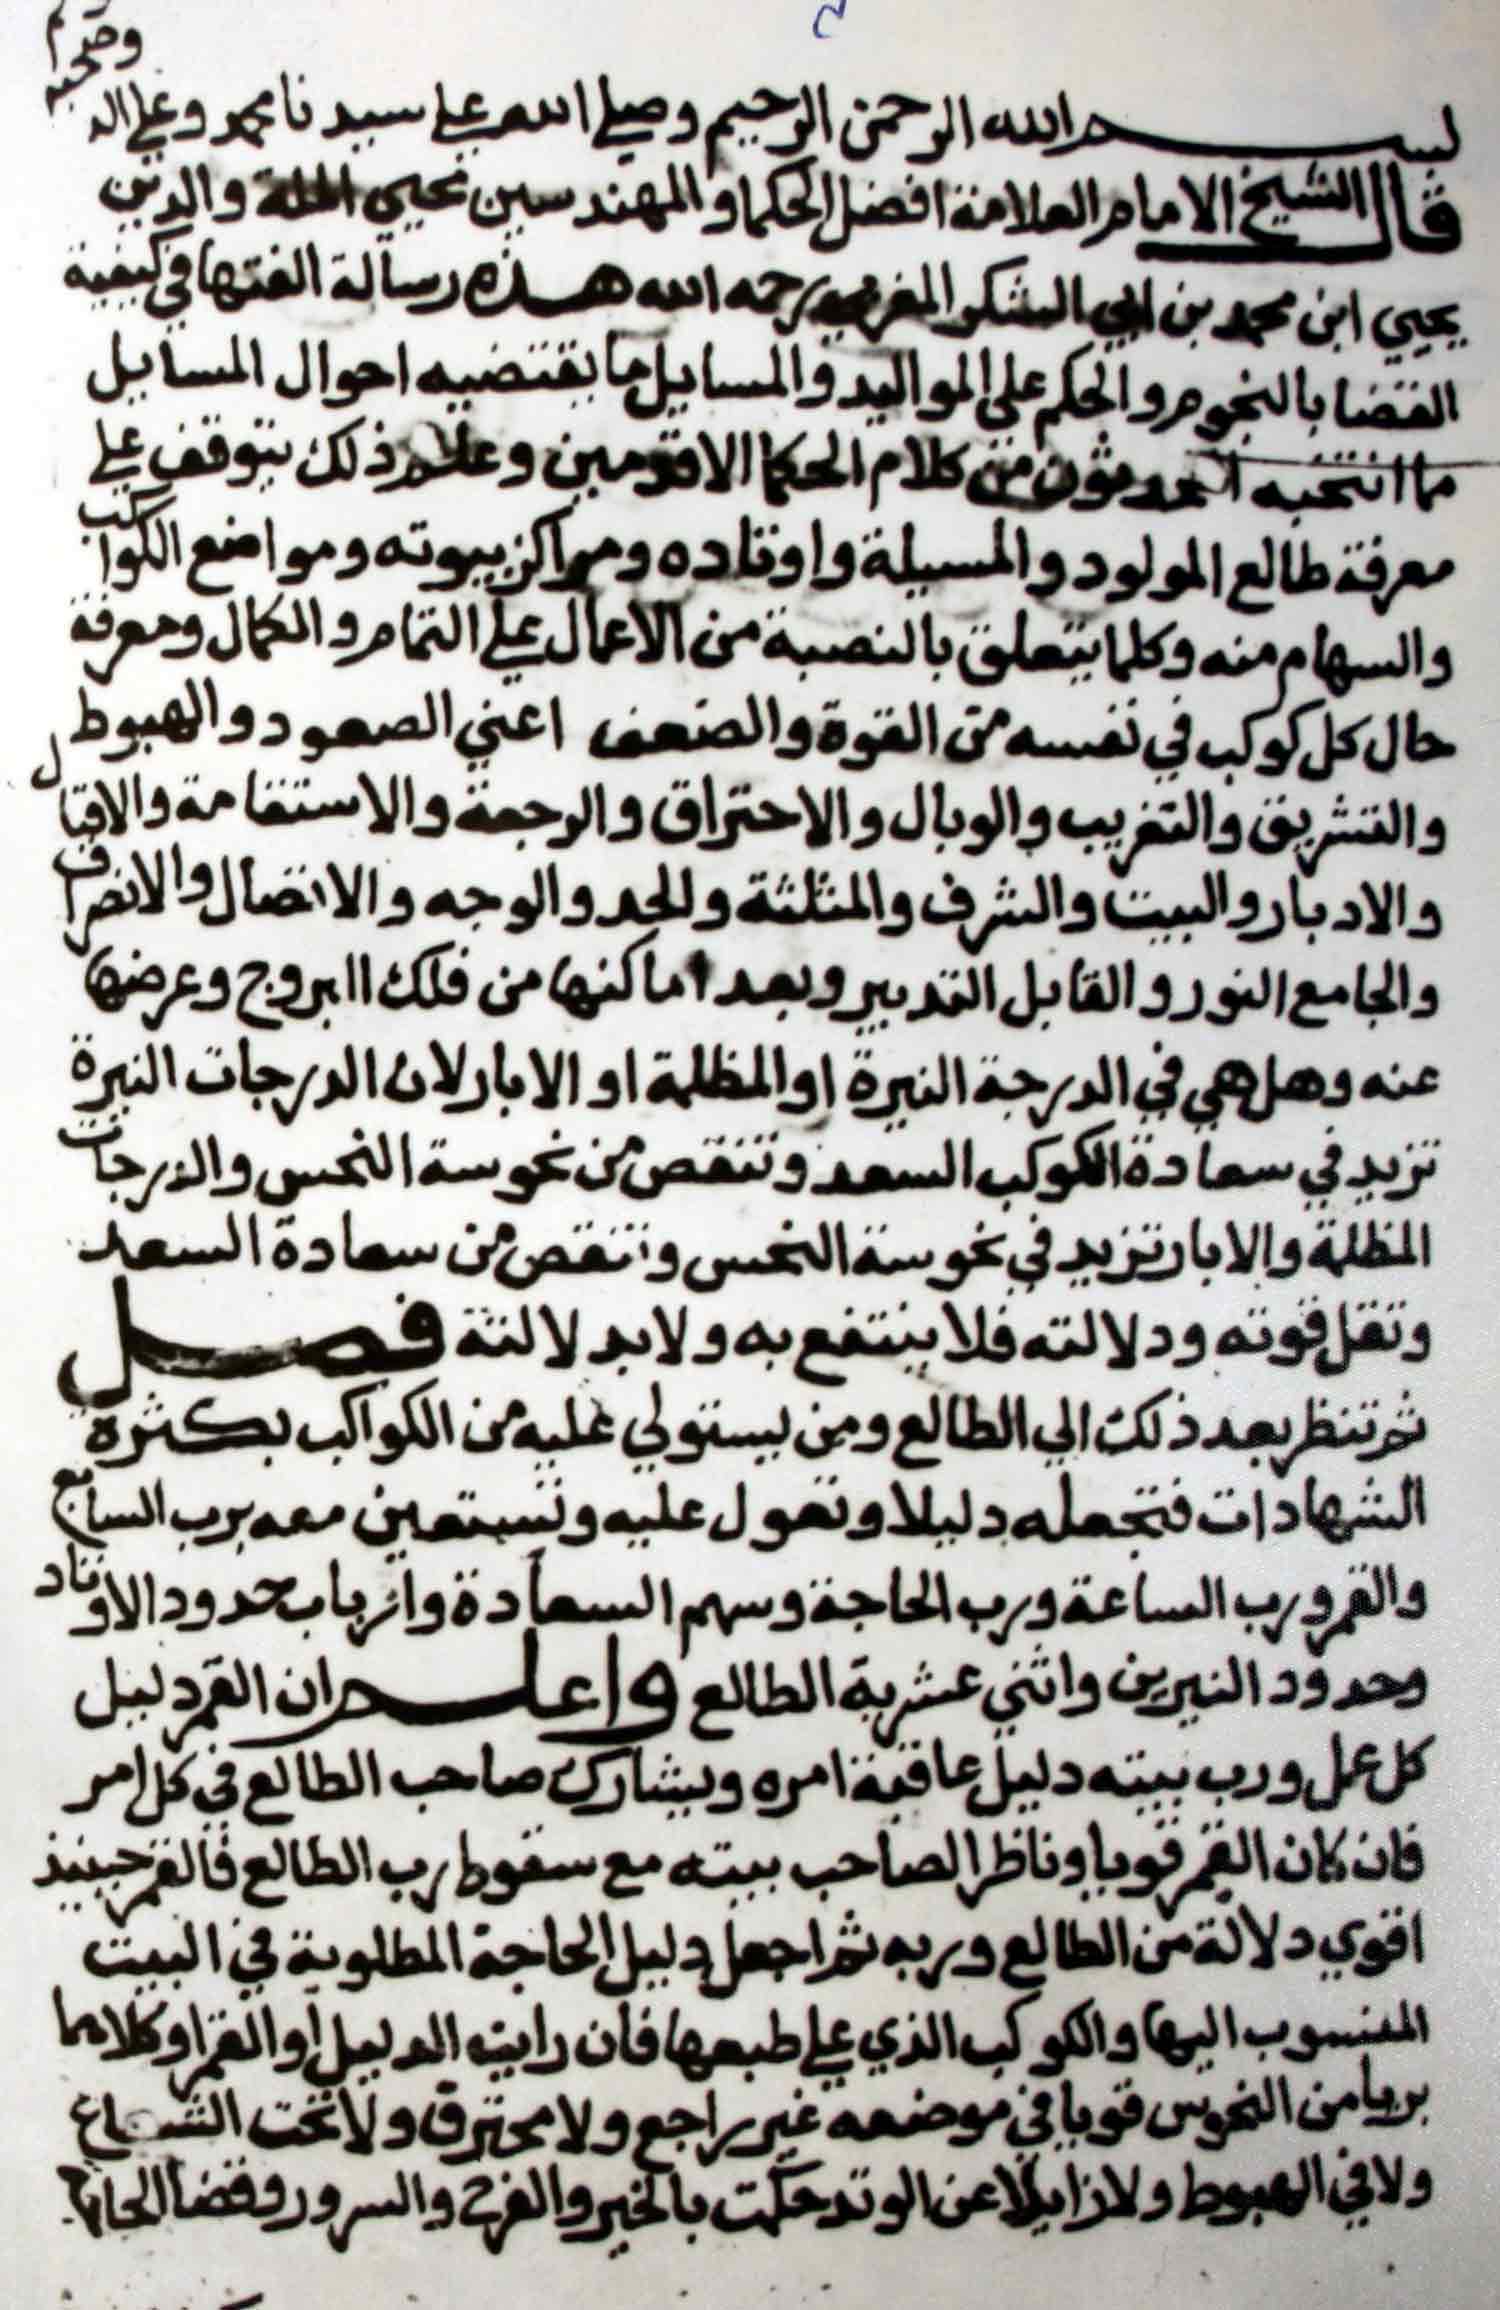 بسم الله الرحمن الرحيم وصلي الله علي سيدنا محمد وعلي اله
وصحبه
قال الشيخ الامام العلامة افضل الحكما والمهندسين محيي الملة والدين
يحيي ابن محمد بن ابي الشكر المغربي رحمه الله هذه رسالة الفتها في كيفية
القضا بالنجوم والحكم علي المواليد والمسايل ما يقتضيه احوال المسايل
مما انتخبه من كلام الحكما الاقدمين وعلم ذلك يتوقف علي
معرفة طالع المولود والمسيلة واوتاده ومراكز بيوته ومواضع الكواكب
والسهام منه وكلما يتعلق بالنصبة من الاعمال علي التمام والكمال ومعرفة
حال كل كوكب في نفسه من القوة والضعف اعني الصعود والهبوط
والتشريق والتغريب والوبال والاحتراق والرجعة والاستقامة والاقبال
والادبار والبيت والشرف والمثلثة والحد والوجه والاتصال والانصراف
والجامع النور والقابل التدبير وبعد اماكنها من فلك البروج وعرضها
عنه وهل هي في الدرجة النيرة او المظلمة او الابار لان الدرجات النيرة
تزيد في سعادة الكوكب السعد وتنقص من نحوسة النحس والدرجات
المظلمة والابار تزيد في نحوسة النحس وتنقص من سعادة السعد
وتقل قوته ودلالته فلا ينتفع به ولا بدلالتة فصل
ثم تنظر بعد ذلك الي الطالع ومن يستولي عليه من الكواكب بكثرة
الشهادات فتجعله دليلا وتعول عليه وتستعين معه برب السابع
والقمر ورب الساعة ورب الحاجة وسهم السعادة وارباب حدود الاوتاد
وحدود النيرين واثني عشرية الطالع واعلم ان القمر دليل
كل عمل ورب بيته دليل عاقبة امره ويشارك صاحب الطالع في كل امر
فان كان القمر قويا وناظرا لصاحب بيته مع سقوط رب الطالع فالقمر حينيذ
اقوي دلالة من الطالع وربه ثم اجعل دليل الحاجة المطلوبة في البيت
المنسوب اليها والكوكب الذي علي طبعها فان رايت الدليل او القمر او كلاهما
بريا من النحوس قويا في موضعه غير راجع ولا محترق ولا تحت الشعاع
ولا في الهبوط ولا زايلا عن الوتد حكمت بالخير والفرح والسرور وقضا الحاجة